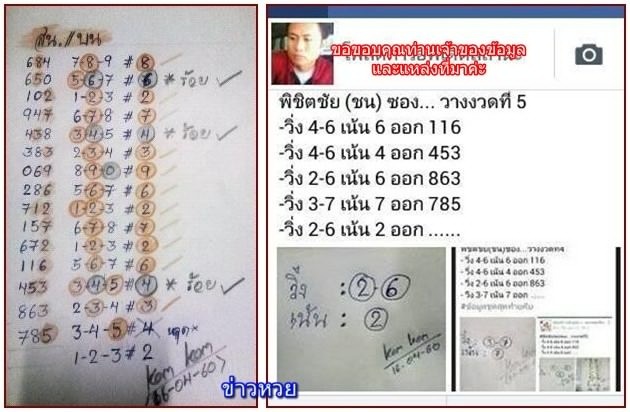 บน
684 7-8-9 # 8
650 5-6-7 # 6 * ร้อย ✓
102 1-2-3 # 2
947 6-7-8 # 7
438 3-4-5 # 4 * ร้อย ✓
383 2-3-4 # 3
069 8-9-0 # 9
286 5-6-7 # 6
712 1-2-3 # 2
157 6-7-8 # 7
672 1-2-3 # 2
116 5-6-7 # 6
453 3-4-5 # 4 * ร้อย ✓
863 2-3-4 # 3
785 3-4-5 # 4 หลุด*
1-2-3 # 2
kom kom
16-04-60
ข่าวหวย
ขอขอบคุณท่านเจ้าของข้อมูล
และแหล่งที่มาค่ะ
พิชิตชัย (ชน) ซอง... วางงวดที่ 5
-วิ่ง 4-6 เน้น 6 ออก 116
-วิ่ง 4-6 เน้น 4 ออก 453
-วิ่ง 2-6 เน้น 6 ออก 863
-วิ่ง 3-7 เน้น 7 ออก 785
-วิ่ง 2-6 เน้น 2 ออก ......
วิ่ง : 2-6
เน้น : 2
kom kom
16-04-60
พิชิตชัย(ชน)ซอง...วางงวดที่4
- วิ่ง 4-6 เน้น 6 ออก 116
- วิ่ง 4-6 เน้น 4 ออก 453
- วิ่ง 2-6 เน้น 6 ออก 863
- วิ่ง 3-7 เน้น 7 ออก